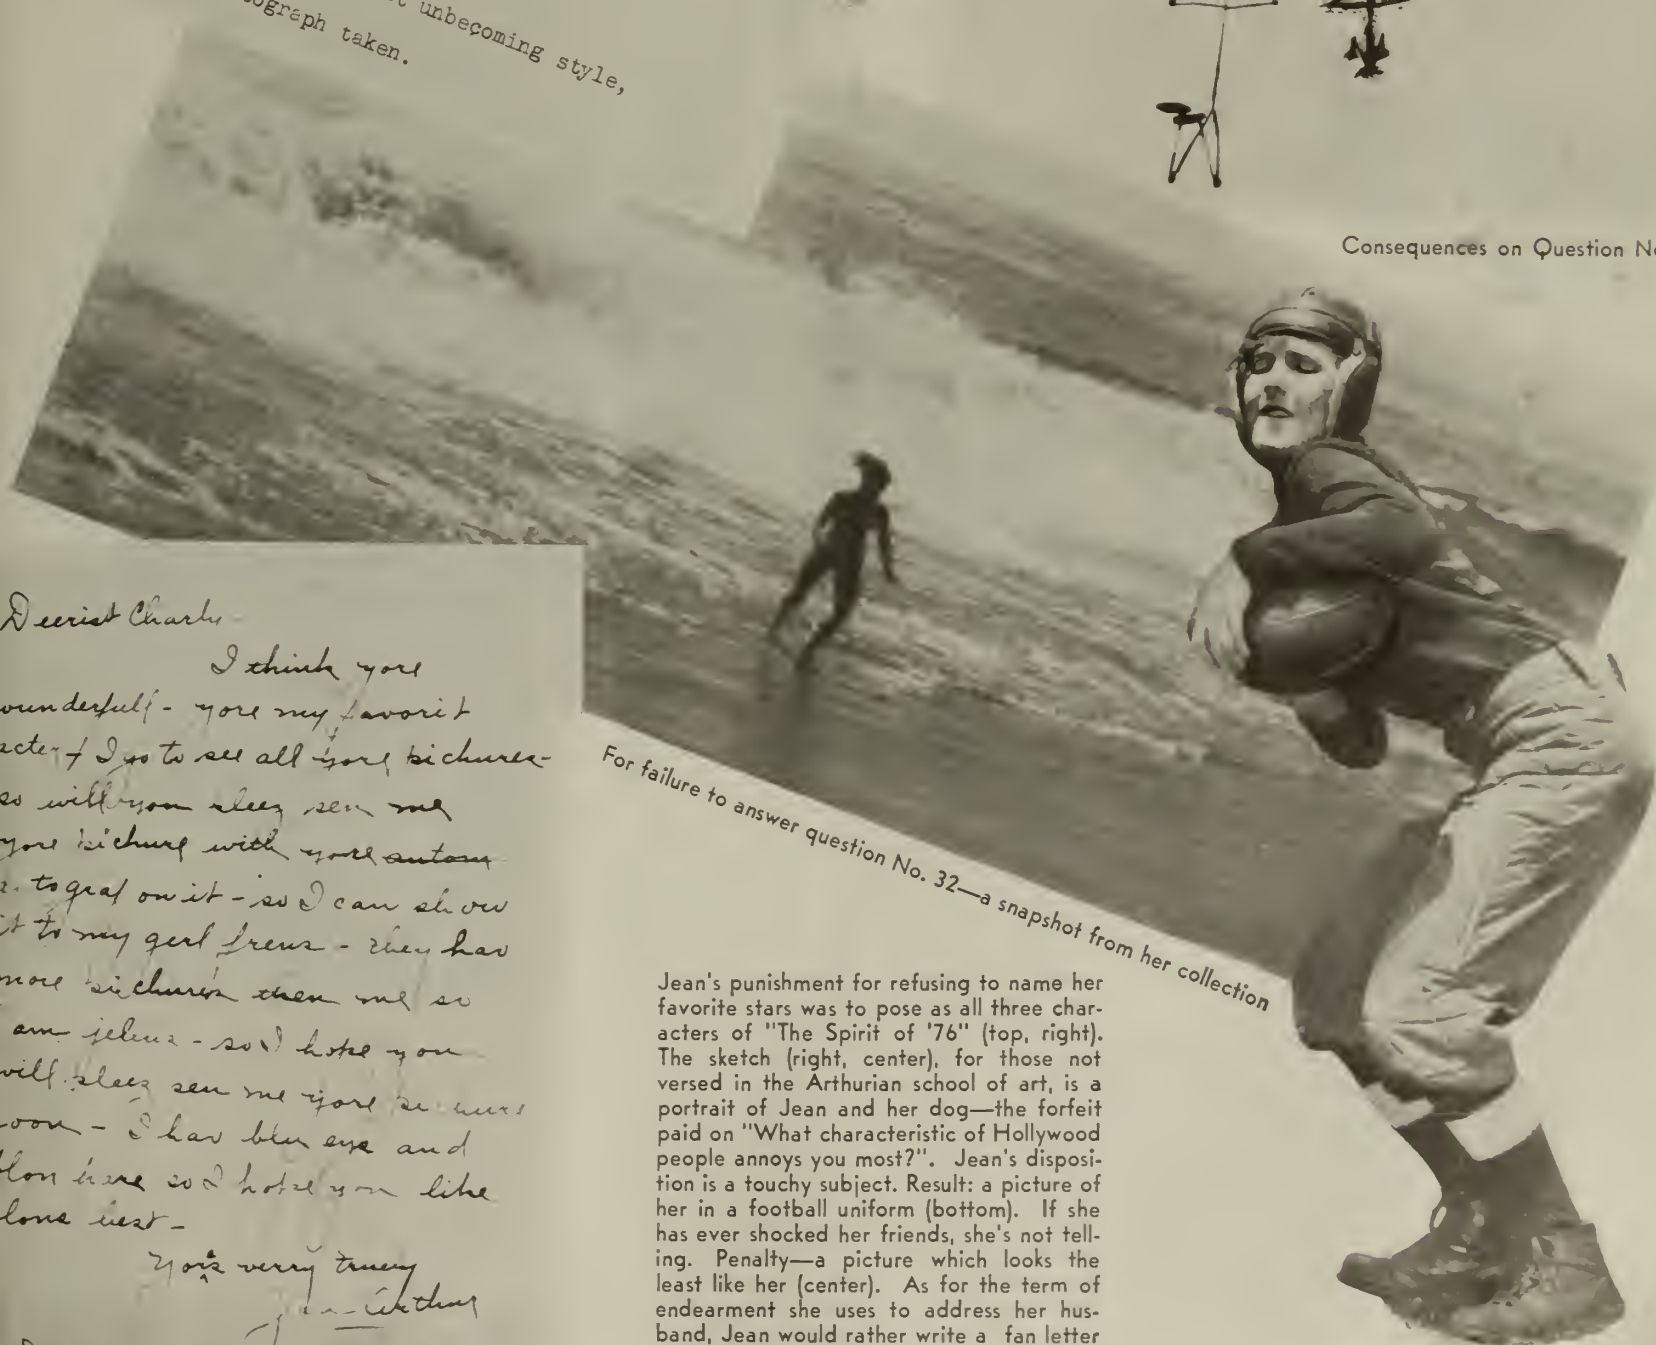 t unbecoming style,
tograph taken.
Consequences on Question No
Deerist Charly -
I think yore
wunderfull - yore my favorit
acter + I go to see all yore pichures -
so will you pleez sen me
yore pichure with yore autom
a. tograf on it - so I can show
it to my gerl frens - they hav
more pichures then me so
am jelous - so I hope you
will pleez sen me yore pichure
soon - I hav blu eys and
blon hare so I hope you like
lons best -
Yors verry truely
Jean Arthur
For failure to answer question No. 32—a snapshot from her collection
Jean's punishment for refusing to name her
favorite stars was to pose as all three char-
acters of "The Spirit of '76" (top, right).
The sketch (right, center), for those not
versed in the Arthurian school of art, is a
portrait of Jean and her dog—the forfeit
paid on "What characteristic of Hollywood
people annoys you most?". Jean's disposi-
tion is a touchy subject. Result: a picture of
her in a football uniform (bottom). If she
has ever shocked her friends, she's not tell-
ing. Penalty—a picture which looks the
least like her (center). As for the term of
endearment she uses to address her hus-
band, Jean would rather write a fan letter